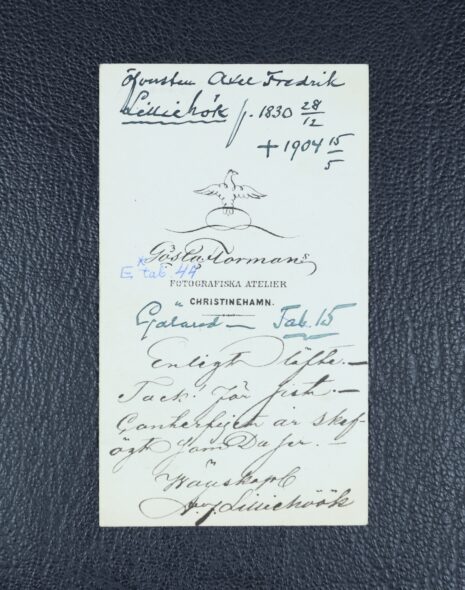 Öfversten Axel Fredrik
Lilliehöök f. 1830 28/12
+ 1904 15/5
Gösta Florman
E tab. 4A
FOTOGRAFISKA ATELIER
CHRISTINEHAMN.
Gälared — Tab. 15
Enligt löfte. —
Tack! för sist. —
Conterfejet är skef-
ögt som
Wänskapl
Lilliehöök